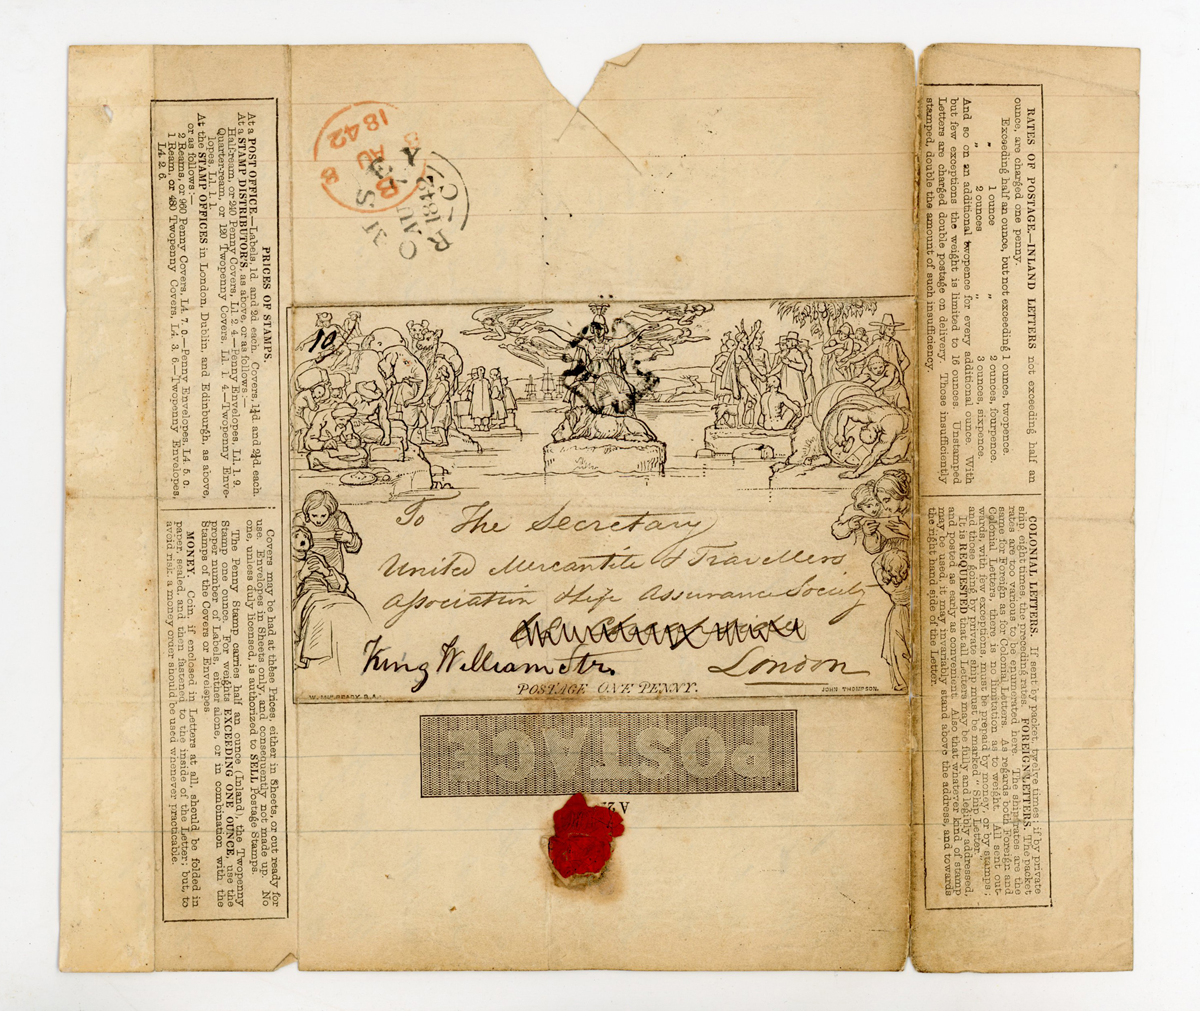 PRICES OF STAMPS.
At a POST OFFICE.—Labels, 1d. and 2d. each. Covers, 1¼d. and 2¼d. each.
At a STAMP DISTRIBUTOR'S, as above, or as follows:—
Half-ream, or 240 Penny Covers, L1. 2 4.—Penny Envelopes, L1. 1. 9.
Quarter-ream, or 120 Twopenny Covers, L1. 1. 4.—Twopenny Enve-
lopes, L1. 1. 1.
At the STAMP OFFICES in London, Dublin, and Edinburgh, as above,
or as follows:—
2 Reams, or 960 Penny Covers, L4. 7. 0.—Penny Envelopes, L4. 5. 0.
1 Ream, or 480 Twopenny Covers, L4. 3. 6.—Twopenny Envelopes,
L4. 2. 6.
Covers may be had at these Prices, either in Sheets, or cut ready for
use. Envelopes in Sheets only, and consequently not made up. No
one, unless duly licensed, is authorized to SELL Postage Stamps.
The Penny Stamp carries half an ounce (Inland), the Twopenny
Stamp one ounce. For weights EXCEEDING ONE OUNCE, use the
proper number of Labels, either alone, or in combination with the
Stamps of the Covers or Envelopes.
MONEY. Coin, if enclosed in Letters at all, should be folded in
paper, sealed, and then fastened to the inside of the Letter; but, to
avoid risk, a money order should be used whenever practicable.
B
AU
1842
1842
AU
10
To The Secretary
United Mercantile & Travellers
Association & Life Assurance Society
King William Str.
London
POSTAGE ONE PENNY.
W. MULREADY. R.A.
JOHN THOMPSON.
POSTAGE
RATES OF POSTAGE.—INLAND LETTERS not exceeding half an
ounce, are charged one penny.
Exceeding half an ounce, but not exceeding 1 ounce, twopence.
" 1 ounce " 2 ounces, fourpence.
" 2 ounces " 3 ounces, sixpence.
And so on an additional twopence for every additional ounce. With
but few exceptions the weight is limited to 16 ounces. Unstamped
Letters are charged double postage on delivery. Those insufficiently
stamped, double the amount of such insufficiency.
COLONIAL LETTERS. If sent by packet, twelve times; if by private
ship, eight times, the preceding rates. FOREIGN LETTERS. The packet
rates are too various to be enumerated here. The ship rates are the
same for Foreign as for Colonial Letters. As regards both Foreign and
Colonial Letters, there is no limitation as to weight. All sent out-
wards, with few exceptions, must be prepaid by money, or by stamps;
and those going by private ship must be marked "Ship Letter."
It is REQUESTED that all Letters may be fully and legibly addressed,
and posted as early as convenient. Also that whatever kind of stamp
may be used, it may invariably stand above the address, and towards
the right hand side of the Letter.